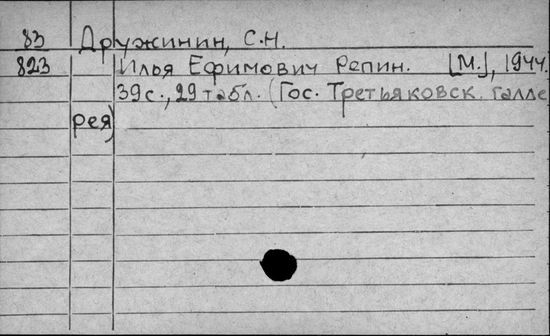 83 Дружинин, С.Н.
823 Илья Ефимович Репин. [М.], 1944.
39с., 29 табл. (Гос. Третьяковск. галле
рея)